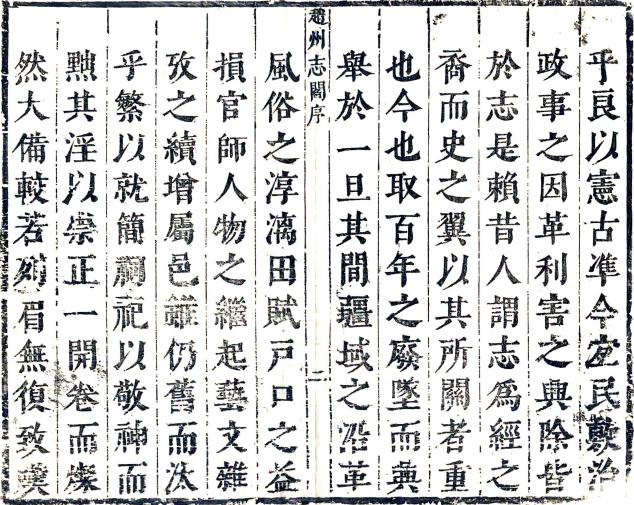 乎良以憲古準今宜民敷治
政事之因革利害之興除皆
於志是賴昔人謂志為經之
裔而史之翼以其所關者重
也今也取百年之廢墜而典
舉於一旦其間疆域之沿革
趙州志閻序
二
風俗之淳漓田賦戶口之益
損官師人物之繼起藝文雜
攷之續增屬邑雖仍舊而汰
乎繁以就簡祠祀以敬神而
黜其淫以崇正一開卷而燦
然大備較若列眉無復致奠